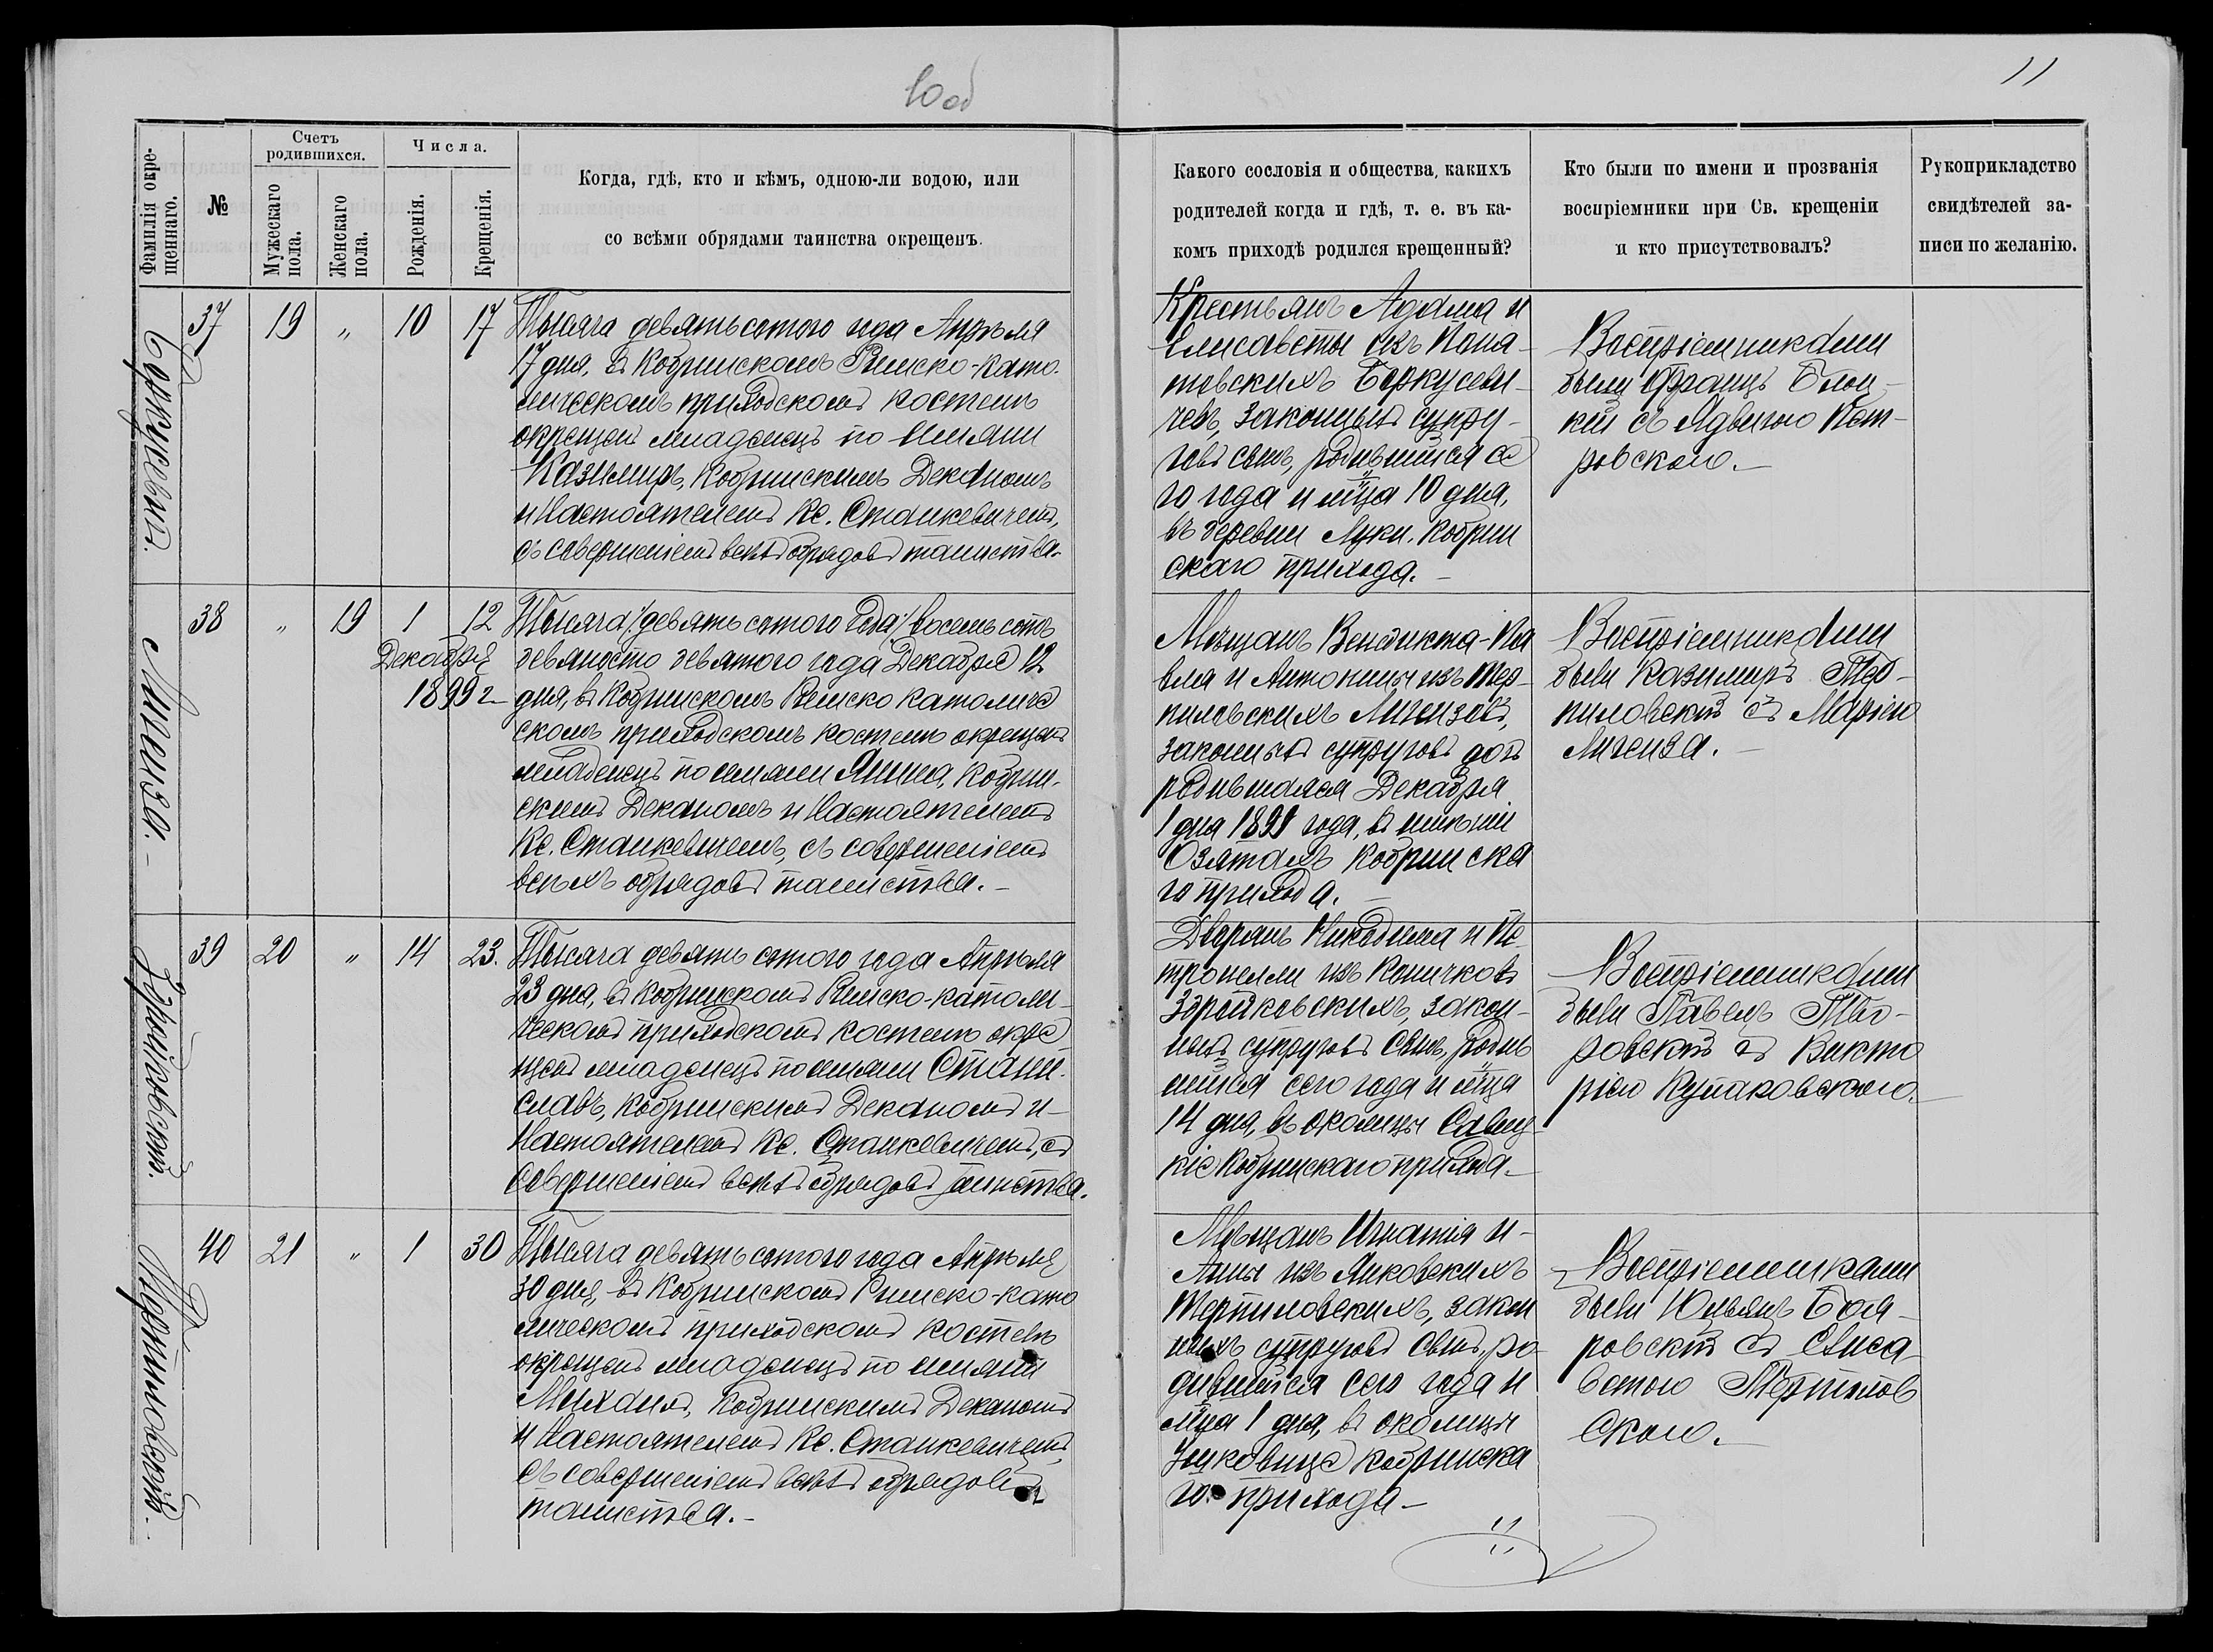 10 об
11
Фамилія окре-
щеннаго.
№
Счетъ
родившихся.
Мужескаго
пола.
Женскаго
пола.
Числа.
Рожденія.
Крещенія.
Когда, гдѣ, кто и кѣмъ, одною-ли водою, или
со всѣми обрядами таинства окрещенъ.
Какого сословія и общества, какихъ
родителей когда и гдѣ, т. е. въ ка-
комъ приходѣ родился крещенный?
Кто были по имени и прозванія
воспріемники при Св. крещеніи
и кто присутствовалъ?
Рукоприкладство
свидѣтелей за-
писи по желанію.
Боркусевичъ.
37 19 „ 10 17
Тысяча девятьсотого года Апрѣля
17 дня, въ Кобринскомъ Римско-като-
лическомъ приходскомъ костелѣ
окрещенъ младенецъ по имяни
Казимиръ, Кобринскимъ Деканомъ
и Настоятелемъ Кс. Станкевичемъ,
съ совершеніемъ всѣхъ обрядовъ таинства.
Крестьянъ Адама и
Елисаветы изъ
Боркусеви-
чевъ, законныхъ супру-
говъ сынъ, родившійся се
го года и мца 10 дня,
въ деревни Луки Кобрин
скаго прихода.
Воспріемниками
были Францъ
кій съ Ядвигою Пет-
ровскою.
Лигенза.
38 „ 19 1 12
Декабря
1899 г
Тысяча /девятьсотого года/ восемьсотъ
девяносто девятого года Декабря 12
дня, въ Кобринскомъ Римско католиче
скомъ приходскомъ костелѣ окрещенъ
младенецъ по имяни Янина, Кобрин-
скимъ Деканомъ и Настоятелемъ
Кс. Станкевичемъ, съ совершеніемъ
всѣхъ обрядовъ таинства.
Мѣщанъ Венедикта-Па
вла и Антонины изъ Тер-
пиловскихъ Лигензовъ,
законныхъ супруговъ дочь
родившаяся Декабря
1 дня 1899 года, въ имѣніи
Озятахъ Кобринска
го прихода.
Воспріемниками
были Казимиръ Тер-
пиловскій съ Маріею
Лигенза.
Здройковскій.
39 20 „ 14 23.
Тысяча девятьсотого года Апрѣля
23 дня, въ Кобринскомъ Римско-католи-
ческомъ приходскомъ костелѣ окре
щенъ младенецъ по имяни Стани-
славъ, Кобринскимъ Деканомъ и
Настоятелемъ Кс. Станкевичемъ, съ
совершеніемъ всѣхъ обрядовъ таинства.
Дворянъ Никодима и Пе
тронелли изъ Коничковъ
Здройковскихъ, закон-
ныхъ супруговъ сынъ, родив
шійся сего года и мца
14 дня, въ околицы Савиц-
кіе Кобринскаго прихода.
Воспріемниками
были Павелъ
ровскій съ Викто
ріею Кулаковскою.
Терпиловскій.
40 21 „ 1 30
Тысяча девятьсотого года Апрѣля
30 дня, въ Кобринскомъ Римско-като
лическомъ приходскомъ костелѣ
окрещенъ младенецъ по имяни
Михаилъ, Кобринскимъ Деканомъ
и Настоятелемъ Кс. Станкевичемъ,
съ совершеніемъ всѣхъ обрядовъ
таинства.
Мѣщанъ Игнатія и
Анны изъ Янковскихъ
Терпиловскихъ, закон
ныхъ супруговъ сынъ, ро-
дившійся сего года и
мца 1 дня, въ околицы
Кобринска
го прихода
Воспріемниками
были Юльянъ Боя-
ровскій съ Елиса-
ветою Терпилов
скою.